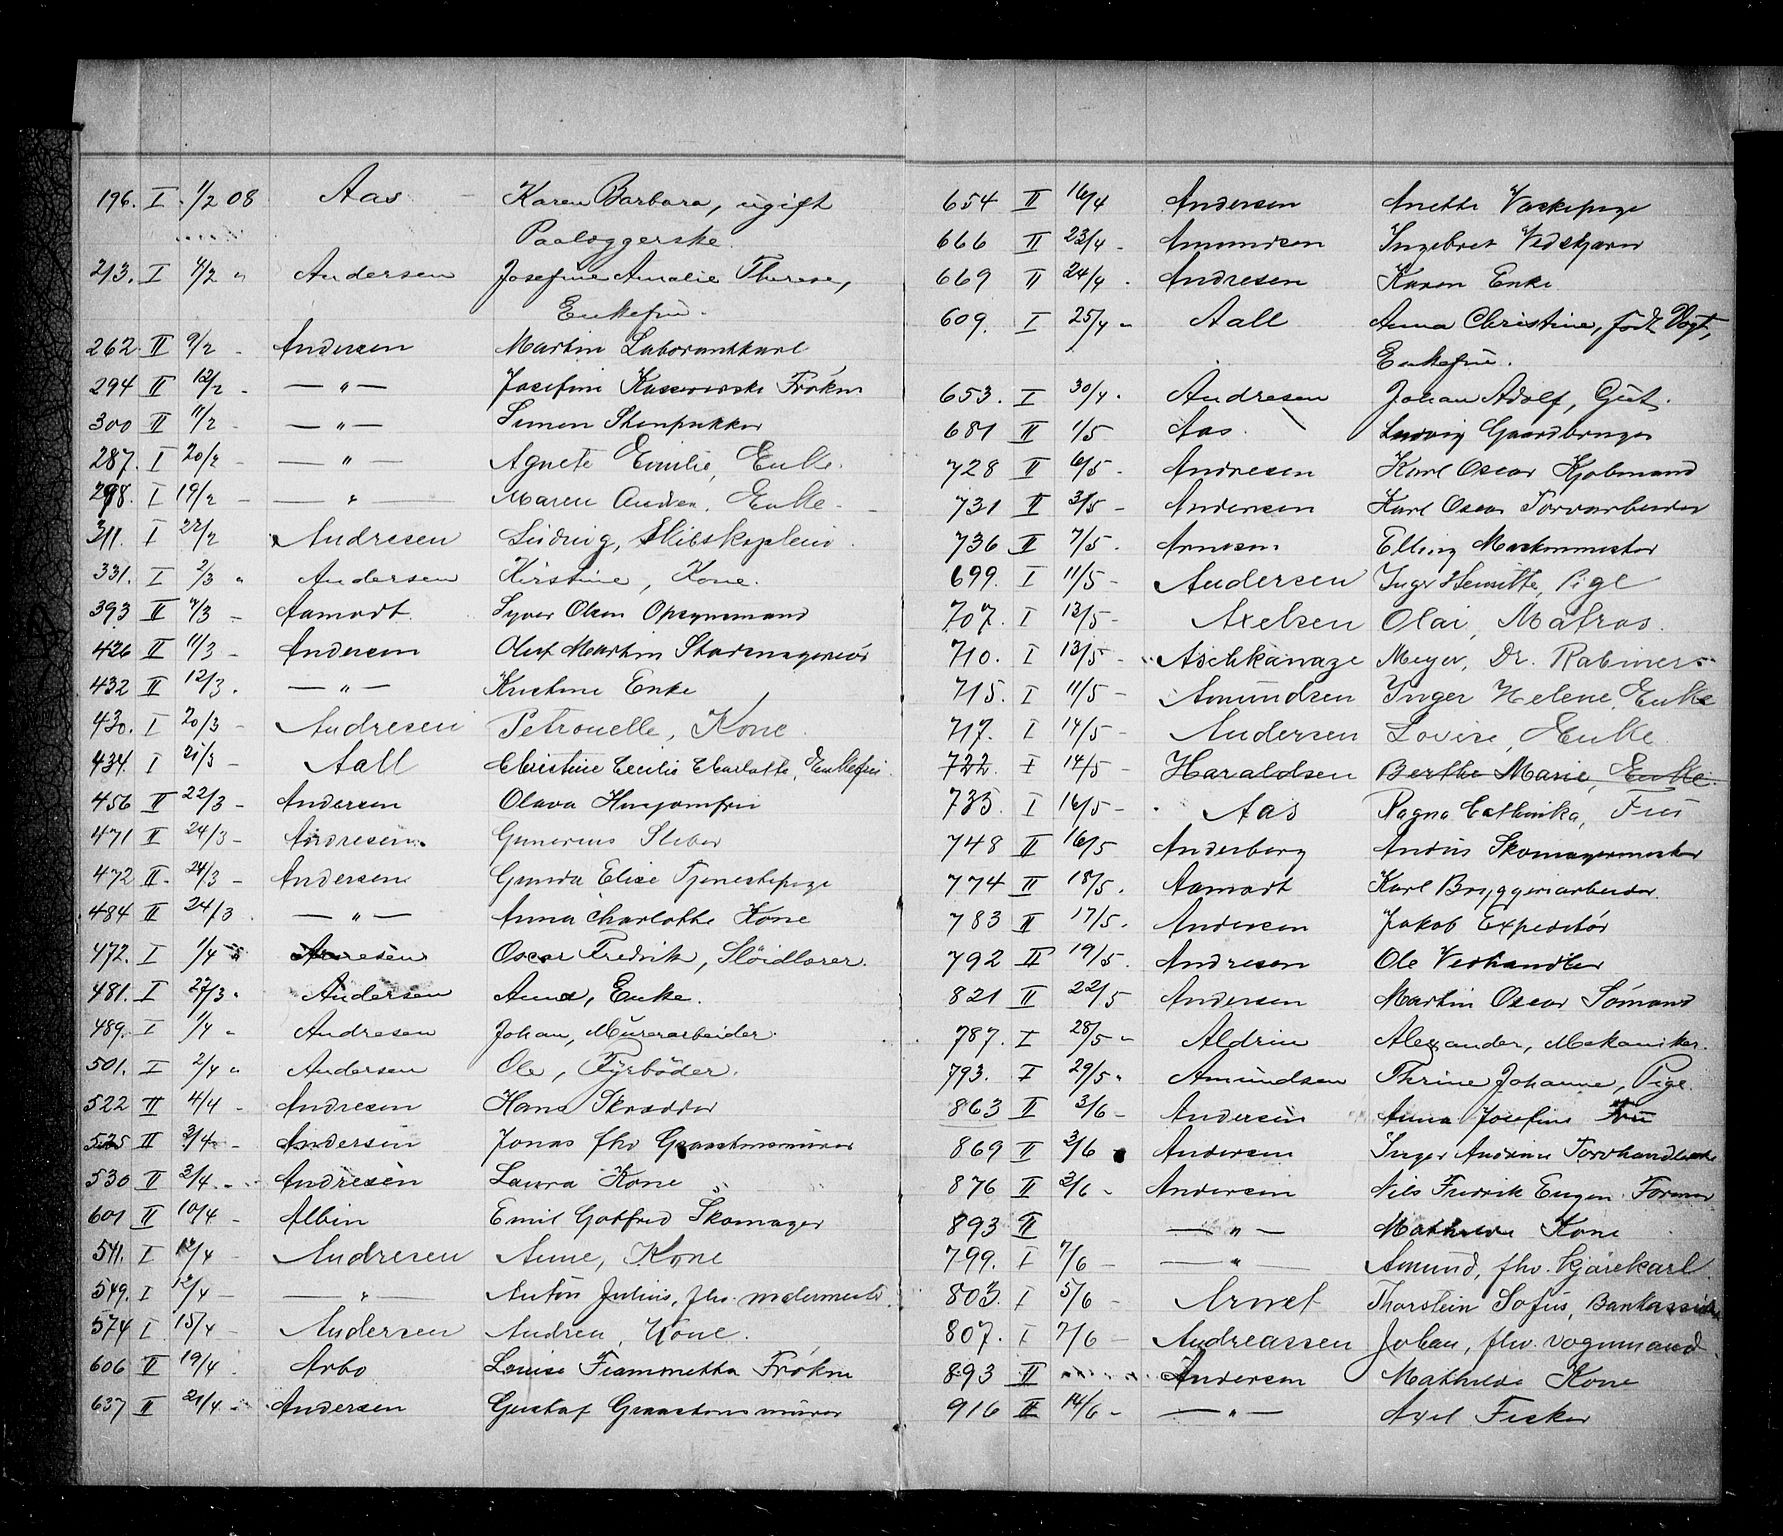 196. I 1/2 08 Aas Karen Barbara, ugift
Paalæggerske.
213. I 4/2 " Andersen Josefine Amalie Therese,
Enkefru.
262 II 9/2 - Andersen Martin Laborantkarl
294 II 12/2 - — " — Josefine Frøken
300 II 11/2 - — " — Simen Stenpukker
287. I 20/2 - — " — Agnete Emilie, Enke.
298. I 19/2 - — " — Maren Andrea, Enke.
311. I 22/2 Andresen Ludvig, Skibskaptein.
331. I 2/3 " Andersen Kirstine, Kone.
393 II 7/3 - Aamodt Syver Olsen Opsynsmand
426 II 11/3 - Andersen Oluf Martin
432 II 12/3. — " — Kristine Enke
430. I 20/3 - Andresen Petronelle, Kone.
434. I 21/3 - Aall Christine Cecilie Charlotte, Enkefru.
456 II 22/3 - Andersen Olava Husjomfru
471 II 24/3 - Andresen. Gunerius Sliber
472 II. 24/3 - Andersen Gunda Elise Tjenestepige
484 II 24/3. — " — Anna Charlotte Kone
472. I 1/4 Andresen Oscar Fredrik, Slöidlærer.
481. I 27/3. Andersen Anna, Enke.
489. I 1/4 " Andresen Johan, Murerarbeider.
501. I 2/4 " Andersen Ole, Fyrbøder.
522 II 4/4 - Andresen Hans Skrædder
525 II 3/4 - Andersen Jonas fhv Graastensmurer
530 II 3/4. - Andresen Laura Kone
601 II 10/4 - Albin Emil Gotfred Skomager
541. I 12/4 - Andresen Anne, Kone
549. I 12/4 - — " — Anton Julius, fhv.
574 I 15/4 - Andersen Andrea, Kone.
606 II 19/4. Arbo Louise Fiammetta Frøken
637 II 21/4 - Andersen Gustaf Graastensmurer
654 II 16/4 Andersen Anette Vaskepige
666 II 23/4 - Amundsen Ingebret Vedskjærer
669 II 24/4. Andresen Karen Enke
609. I 25/4 " Aall Anna Christine, født Vogt,
Enkefru.
653. I 30/4. Andresen Johan Adolf, Gut.
681 II 1/5 Aas. Ludvig Gaardbruger
728 II 6/5. Andresen Karl Oscar Kjøbmand
731 II 3/5 - Andersen Karl Oscar Torvarbeider
736 II 7/5. Arnesen Elling Maskinmester
699. I 11/5 - Andersen Inger Henritte, Pige
707. I 12/5 - Axelsen Olai, Matros.
710. I 13/5 - Aschkanaze Meyer, Dr. Rabiner
715. I 11/5 - Amundsen Inger Helene, Enke
717. I 14/5 - Andersen Lovise, Enke
722. I 14/5 - Haraldsen Berthe Marie, Enke.
735. I 16/5 - Aas Ragna Cathinka, Fru
748 II 16/5 Anderberg Andris Skomagermester
774 II 18/5. Aamodt Karl Bryggeriarbeider.
783 II 17/5. Andersen Jakob Expeditør
792 II 19/5. Andresen Ole Vedhandler
821 II 22/5 Andersen Martin Oscar Sømand
787. I 28/5 " Aldrin Alexander, Mekaniker.
793. I 29/5. Amundsen Thrine Johanne, Pige.
863 II 3/6 - Andersen Anna Josefine Fru
869 II 3/6 Andersen Inger Andrine Torvhandlerske
876 II 2/6 - Andersen Nils Fredrik Eugen Former
893 II — " — Mathilde Kone
799. I 7/6 - — " — Amund, fhv. Kjørekarl.
803. I 5/6 - Arnet Thorstein Sofus,
807. I 7/6 - Andreassen Johan, fhv. vognmand.
893 II Andersen Mathilde Kone
916 II 14/6 - — " — Axel Fisker